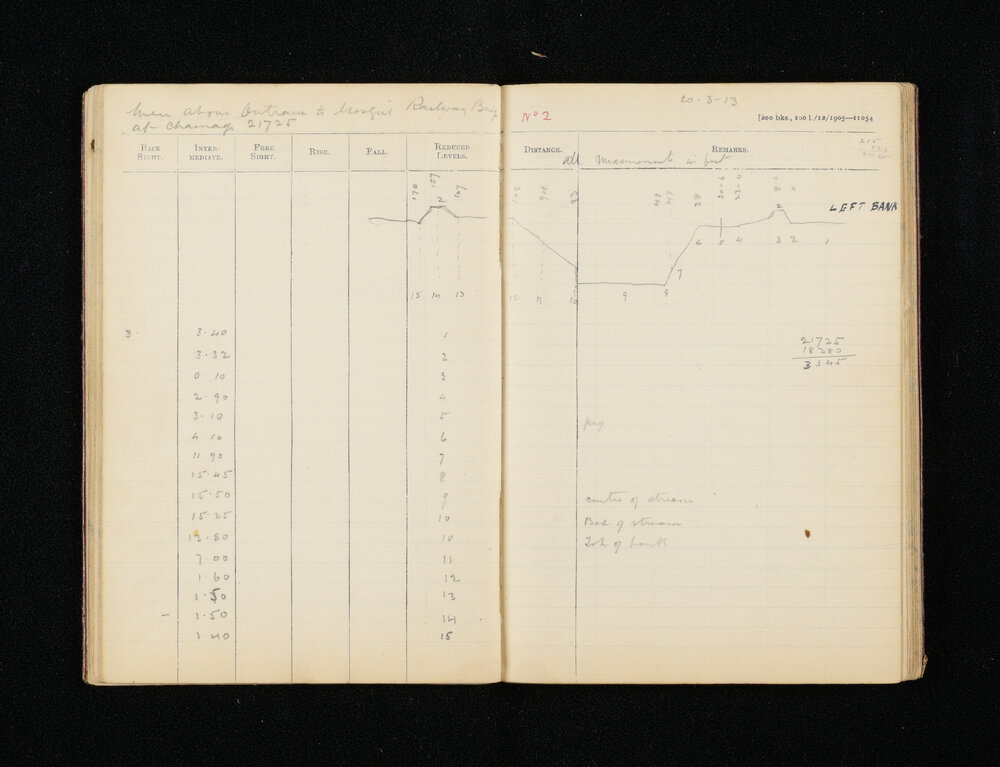 above Entrance to Mosgiel Railway
at chainage 21725
BACK SIGHT. INTER-MEDIATE. FORE SIGHT. RISE. FALL. REDUCED LEVELS.
170 157 147
2
15 14 13
3 3.40 1
3.32 2
0 10 3
2.90 4
3.10 5
4 10 6
11.90 7
15.45 8
15.50 9
15.25 10
13.80 10
7.00 11
1 60 12
1.50 13
- 1.50 14
1.40 15
20-3-13
No 2
[200 bks., 100 l./12/1905—11054
DISTANCE. REMARKS.
all measurements in feet
LEFT BANK
6 5 4 3 2 1
7
12 11 10 9 8
21725
18380
3345
peg
centre of stream
Bed of stream
of bank